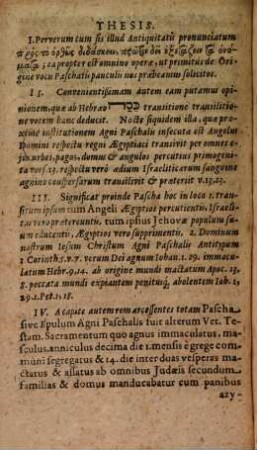 THESIS.
I. Perverum cum sit illud Antiquitatis pronunciatum
πρὸς τὸ ὀρθῶς διδάσκειν, πρῶτον δεῖ ἐξετάζειν τὰ ὀνό-
ματα, eapropter est omnino operæ, ut primitus de Ori-
gine vocis Paschatis pauculis nos præbeamus solicitos.
I 5. Convenientissimam autem eam putamus opi-
nionem, quæ ab Hebræo transitione transilitio-
ne vocem hanc deducit. Nocte siquidem illa, quæ pro-
xime institutionem Agni Paschalis insecuta est Angelus
Domini respectu regni Ægyptiaci transivit per omnes e-
jus urbes, pagos, domus & angulos percutiens primogeni-
ta vers. 23. respectu verò ædium Israëliticarum sanguine
agnino conspersarum transilivit & præteriit v. 13. 23.
III. Significat proinde Pascha hoc in loco 1. tran-
situm ipsum tum Angeli Ægyptios percutientis, Israëli-
tas vero prætereuntis, tum ipsius Jehovæ populum su-
um educentis, Ægyptios vero supprimentis. 2. Dominum
nostrum Jesum Christum Agni Paschalis Antitypum
1 Corinth. 5. v. 7. verum Dei agnum Johan. 1. 29. imma-
culatum Hebr. 9. 14. ab origine mundi mactatum Apoc. 13.
8. peccata mundi expiantem penitusque abolentem Ioh. 1,
29. 1. Pet. 1, 18.
IV. A capite autem rem arcessentes totam Pascha
sive Epulum Agni Paschalis fuit alterum Vet. Te-
stam. Sacramentum quo agnus immaculatus, ma-
sculus, anniculus decima die 1. mensis è grege com-
muni segregatus & 14. die inter duas vesperas ma-
ctatus & assatus ab omnibus Judæis secundum
familias & domus manducabatur cum panibus
azy-